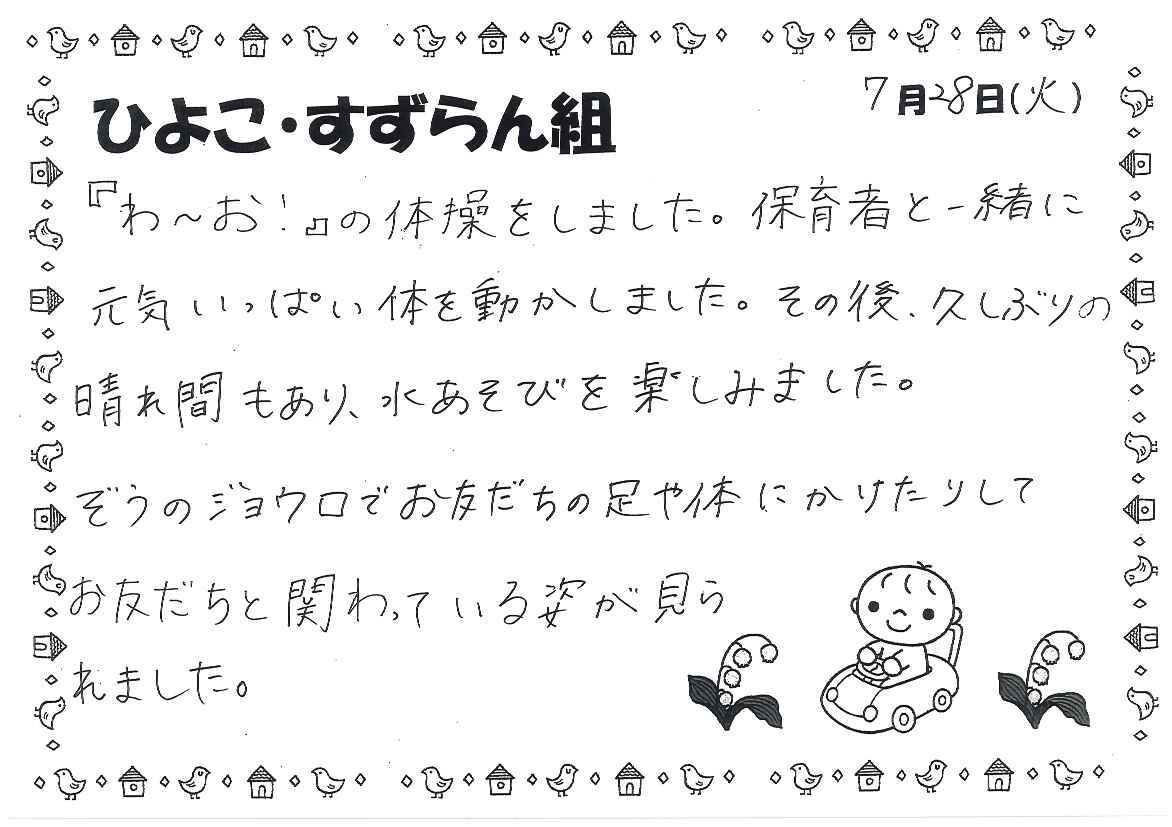 ひよこ・すずらん組
7月28日(火)
『わ～お！』の体操をしました。保育者と一緒に
元気いっぱい体を動かしました。その後、久しぶりの
晴れ間もあり、水あそびを楽しみました。
ぞうのジョウロでお友だちの足や体にかけたりして
お友だちと関わっている姿が見ら
れました。